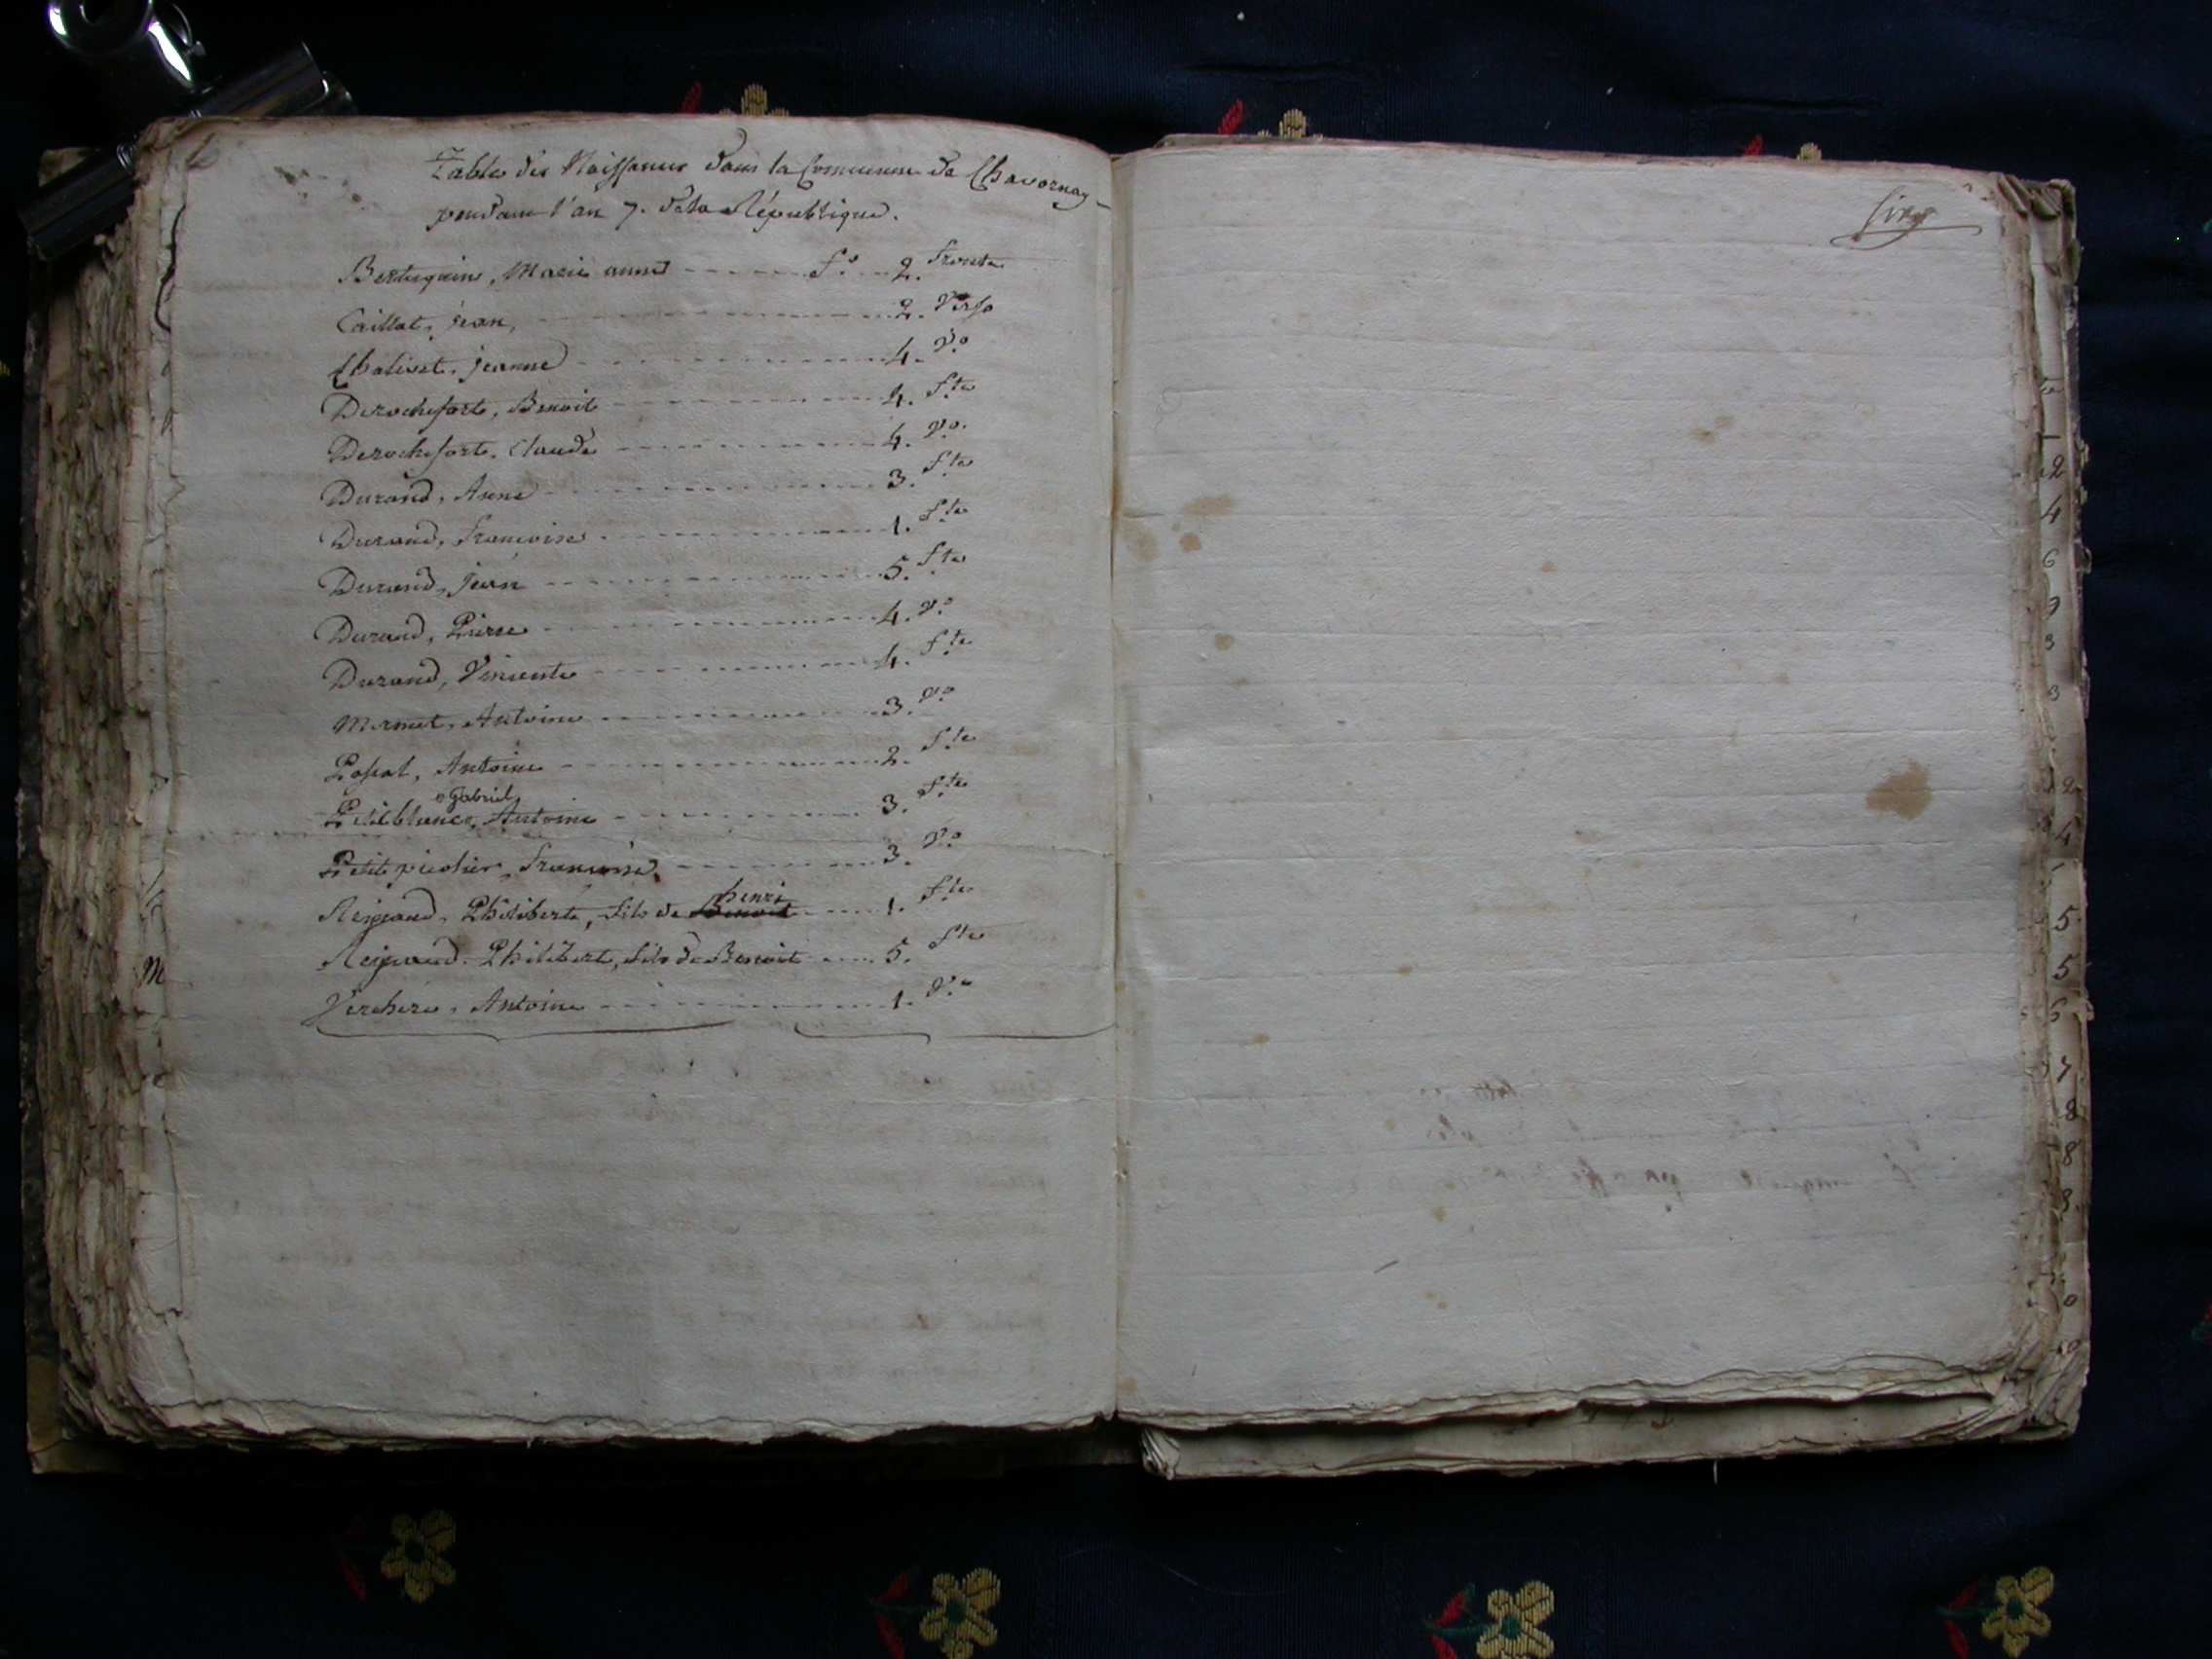 Table des Naissances dans la Commune de Chavornay
pendant l'an 7. de la République.
Bertugnin, Marie anne f.o 2. fronte
Caillat, jean, 2. Verso
Chalivet, jeanne 4. V.o
Derochefort, Benoit 4. f.te
Derochefort, Claude 4. V.o
Durand, Anne 3. f.te
Durand, francoise 1. f.te
Durand, jean 5. f.te
Durand, Pierre 4. V.o
Durand, Vincente 4. f.te
Mermet, Antoine 3. V.o
Antoine 2. f.te
Gabriel
Petitblanc, Antoine 3. f.te
francoise 3. V.o
Reygaud, Philiberte, fils de Benoit henri 1. f.te
Reygaud, Philibert, fils de Benoit 5. f.te
Verchere, Antoine 1. V.o
cinq
M
2
4
6
3
3
2
4
5
5
6
7
8
8
8